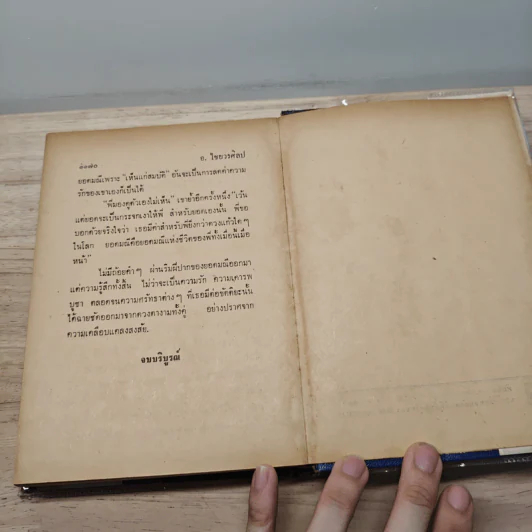 ๑๐๗๐
อ. ไชยวรศิลป
ยอดมณีเพราะ "เห็นแก่สมบัติ" อันจะเป็นการลดค่าความ
รักของเขาเองก็เป็นได้
"พี่มองดูตัวเองไม่เห็น" เขาย้ำอีกครั้งหนึ่ง "เว้น
แต่ยอดจะเป็นกระจกเงาให้พี่ สำหรับยอดเองนั้น พี่ขอ
บอกด้วยจริงใจว่า เธอมีค่าสำหรับพี่ยิ่งกว่าดวงแก้วใด ๆ
ในโลก ยอดมณีคือยอดมณีแห่งชีวิตของพี่ทั้งเมื่อนี้เมื่อ
หน้า"
ไม่มีถ้อยคำ ๆ ผ่านริมฝีปากของยอดมณีออกมา
แต่ความรู้สึกทั้งสิ้น ไม่ว่าจะเป็นความรัก ความเคารพ
บูชา ตลอดจนความศรัทธาต่าง ๆ ที่เธอมีต่อขัตติยะนั้น
ได้ฉายชัดออกมาจากดวงตางามทั้งคู่ อย่างปราศจาก
ความเคลือบแคลงสงสัย.
จบบริบูรณ์